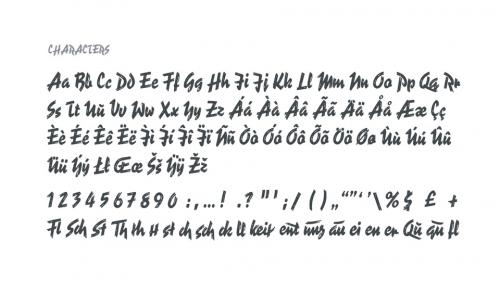 CHARACTERS
Aa Bb Cc Dd Ee Ff Gg Hh Ii Jj Kk Ll Mm Nn Oo Pp Qq Rr
Ss Tt Uu Vv Ww Xx Yy Zz Áá Àà Ââ Ãã Ää Åå Ææ Çç
Èè Éé Êê Ëë Ìì Íí Îî Ïï Ññ Òò Óó Ôô Õõ Öö Øø Ùù Úú Ûû
Üü Ýý Łł Œœ Šš Ÿÿ Žž
1 2 3 4 5 6 7 8 9 0 : , ... ! . ? " ' ; / ( ) „ “ ” ‘ ’ \ % £ +
Fl Sch St Th th tt st ch sch ck ll keit ent ung au ei en er Qu qu fl